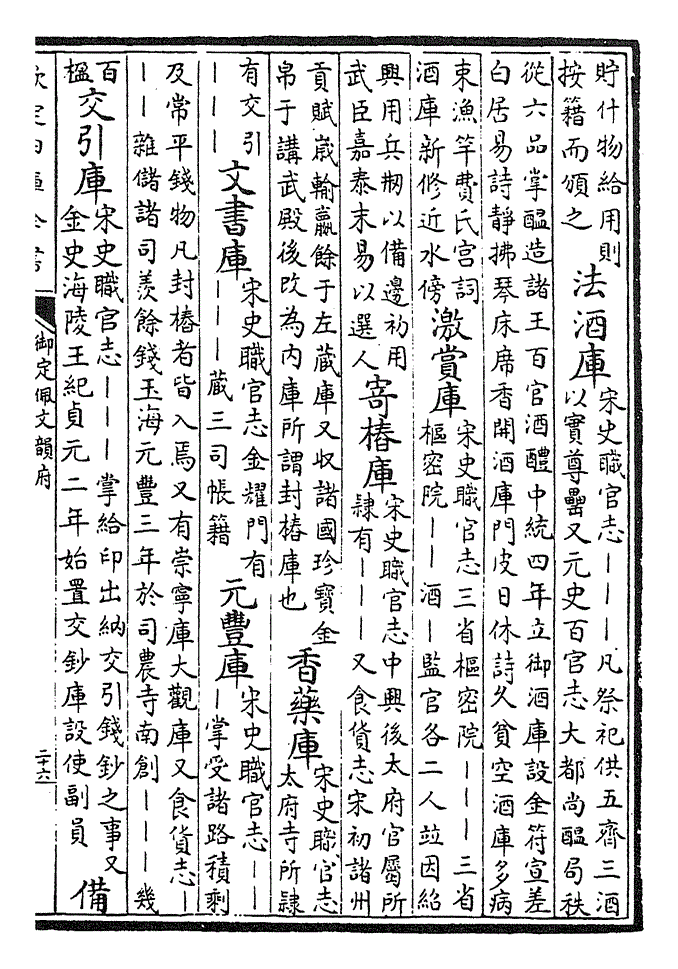 貯什物給用則
按籍而頒之
法酒庫
宋史職官志———凡祭祀供五齊三酒
以實尊罍又元史百官志大都尚醖局秩
從六品掌醖造諸王百官酒醴中統四年立御酒庫設金符宣差
白居易詩靜拂琴床席香開酒庫門皮日休詩久貧空酒庫多病
束漁竿費氏宫詞
酒庫新修近水傍
激賞庫
宋史職官志三省樞密院———三省
樞密院——酒—監官各二人竝因紹
興用兵剏以備邊初用
武臣嘉泰末易以選人
寄樁庫
宋史職官志中興後太府官屬所
隸有———又食貨志宋初諸州
貢賦嵗輸嬴餘于左藏庫又收諸國珍寶金
帛于講武殿後改為内庫所謂封樁庫也
香藥庫
宋史職官志
太府寺所隸
有交引
———
文書庫
宋史職官志金耀門有
———藏三司帳籍
元豐庫
宋史職官志——
—掌受諸路積剩
及常平錢物凡封樁者皆入焉又有崇寧庫大觀庫又食貨志—
——雜儲諸司羨餘錢玉海元豐三年於司農寺南創———幾
百
楹
交引庫
宋史職官志———掌給印出納交引錢鈔之事又
金史海陵王紀貞元二年始置交鈔庫設使副員
備
欽定四庫全書
御定佩文韻府
二十六